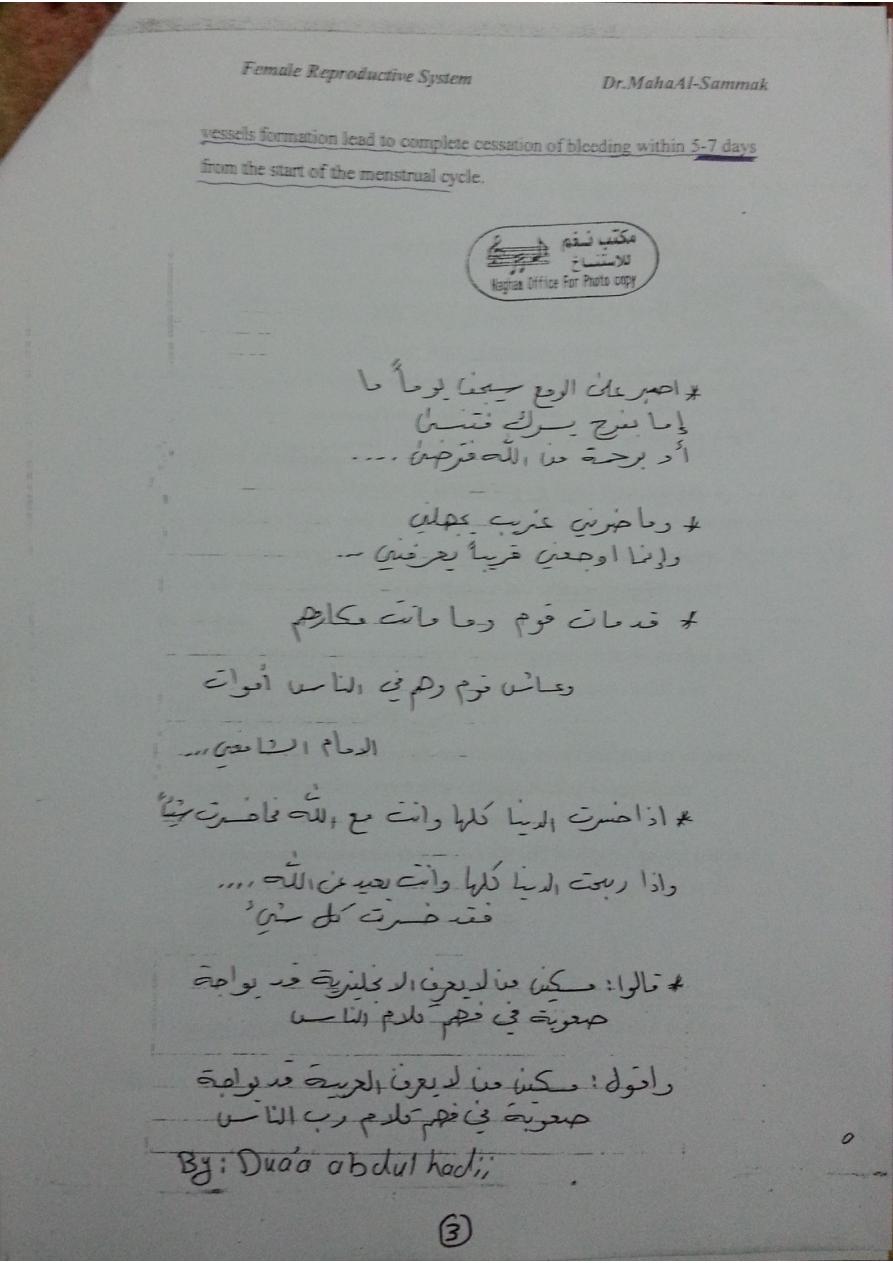 Female Reproductive System Dr.MahaAl-Sammak
vessels formation lead to complete cessation of bleeding within 5-7 days
from the start of the menstrual cycle.
مكتب نغم
للاستنساخ
Nagham Office For Photo copy
* اصبر على الوجع سيجف يوماً ما
إما بفرح يسرك فتنسى
أو برحمة من الله فترضى ....
* وما ضرني غريب يجهلني
وإنما اوجعني قريباً يعرفني ...
* قد مات قوم وما ماتت مكارمهم
وعاش قوم وهم في الناس أموات
الامام الشافعي ...
* اذا خسرت الدنيا كلها وانت مع الله فما خسرت شيئاً
واذا ربحت الدنيا كلها وانت بعيد عن الله ....
فقد خسرت كل شيءٌ
* قالوا: مسكين من لا يعرف الانجليزية قد يواجة
صعوبة في فهم كلام الناس
واقول: مسكين من لا يعرف العربية قد يواجة
صعوبة في فهم كلام رب الناس
By: Dua'a abdul hadii
3